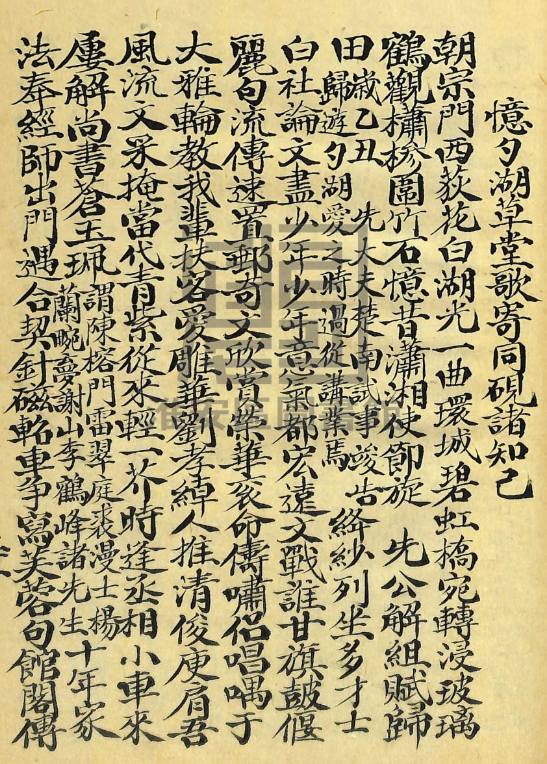 憶勺湖草堂歌寄同硯諸知己
朝宗門西荻花白湖光一曲環城碧虹橋宛轉浸玻璃
鶴觀櫹槮圍竹石憶昔瀟湘使節旋 先公解組賦歸
田歲乙丑 先大夫楚南試事竣告歸遊勺湖愛之時過從講業焉絳紗列坐多才士
白社論文盡少年少年意氣都宏遠文戰誰甘旗鼓偃
麗句流傳速置郵奇文欣賞榮華袞命儔嘯侶唱喁于
大雅輪教我輩扶客愛雕華劉孝綽人推清俊庾肩吾
風流文采掩當代青紫從來輕一芥時逢丞相小車來
屢解尚書蒼玉珮謂陳榕門雷翠庭裘漫士楊蘭畹夢謝山李鶴峰諸先生十年家
法奉經師出門遇合契針磁軺車爭寫芙蓉句館閣傳